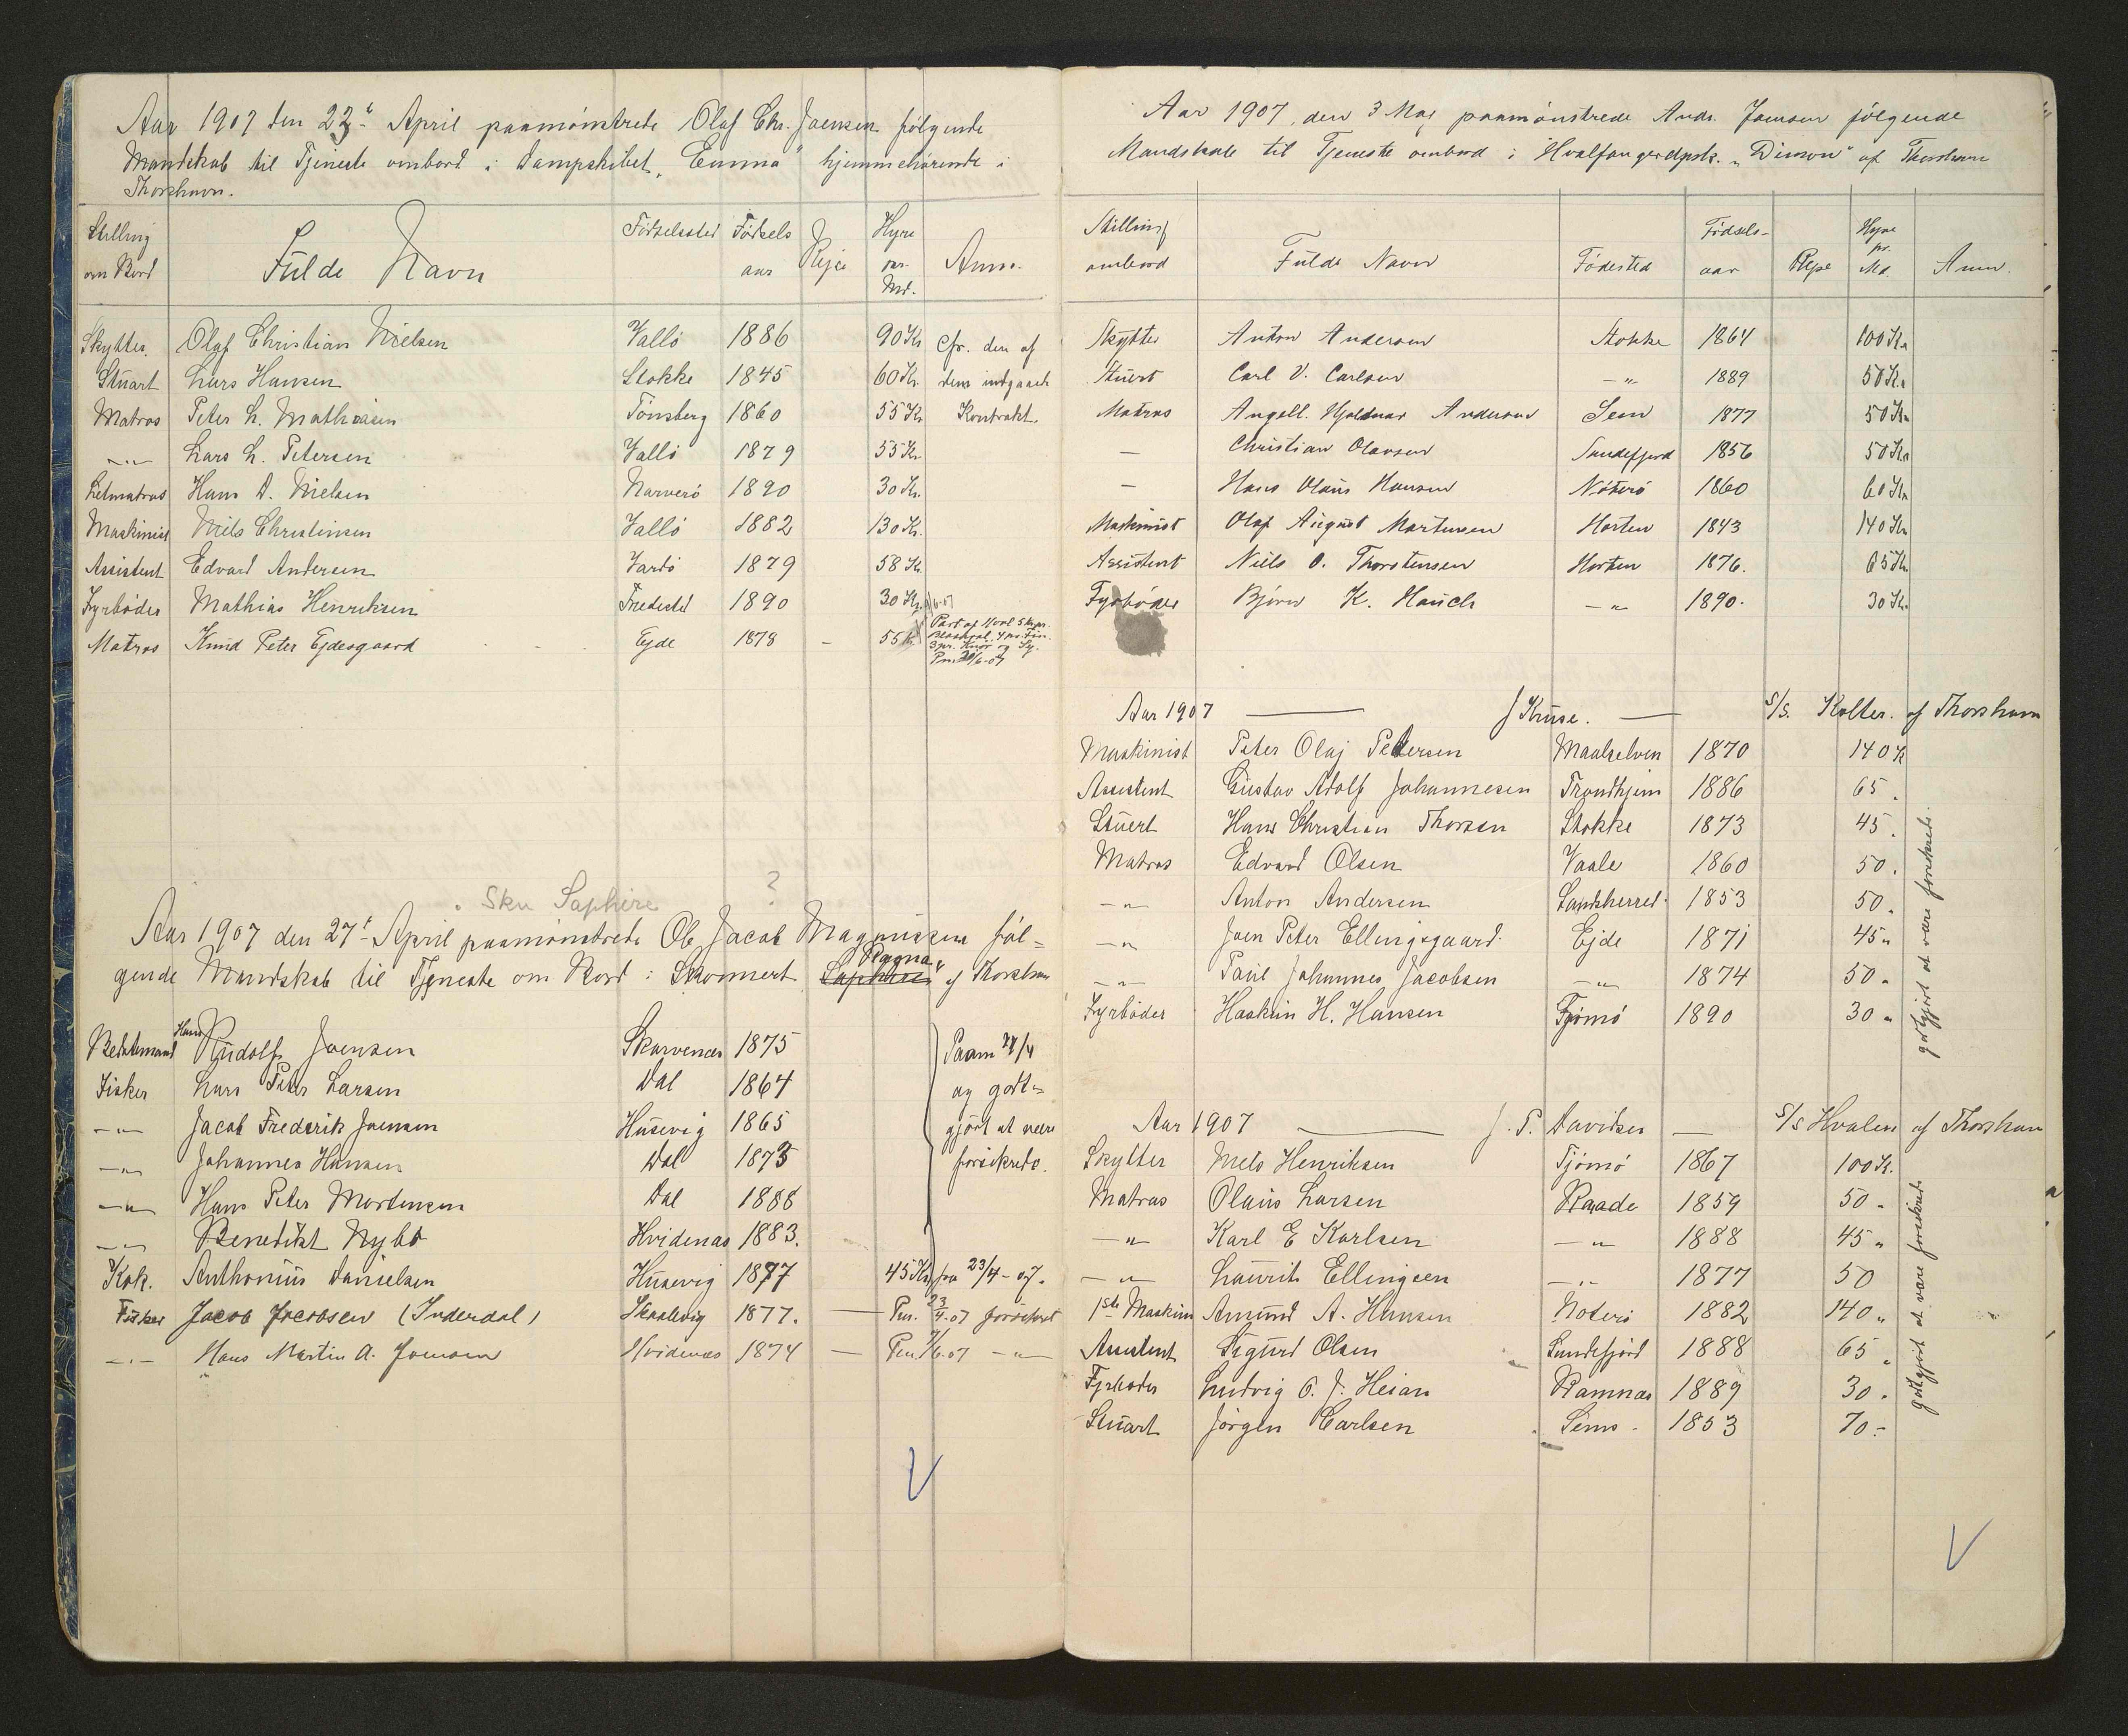 Aar 1907 den 23de April paamönstrede Olaf Chr. Joensen følgende
Mandskab til Tjeneste ombord i Dampskibet "Emma" hjemmehörende i
Thorshavn.
Stilling om Bord Fulde Navn Födselssted Födselsaar Rejse Hyre pr. Md. Anm.
Skytter. Olaf Christian Nielsen Vallö 1886 90 Kr cfr. den af
Stuart Lars Hansen Stokke 1845 60 Kr. dem indgaaede
Matros Peter L. Mathiasen Tönsberg 1860 55 Kr Kontrakt.
-"- Lars L. Petersen Vallö 1879 55 Kr.
Letmatros Hans D. Nielsen Narverö 1890 30 Kr.
Maskinist Niels Christensen Vallö 1882 130 Kr.
Assistent Edvard Andersen Vardö 1879 58 Kr.
Fyrböder Mathias Henriksen 1890 30 Kr.
Matros Knud Peter Ejdesgaard Ejde 1878 - 55 Kr
Part af Hval 5 kr.
Sku Saphire ?
Aar 1907 den 27de April paamönstrede Ole Jacob Magnussen föl=
gende Mandskab til Tjeneste om Bord i Skonnert Saphire "Ragna" af Thorshavn
Bestemand Hans Rudolf Joensen Skarvenæs 1875 Paam 27/4
Fisker Lars Peter Larsen Dal 1864 og godt=
-"- Jacob Frederik Joensen Husevig 1865 gjört at være
-"- Johannes Hansen Dal 1873 forsikrede.
-"- Hans Peter Mortensen Dal 1888
-"- Benedikt Nybo Hvidenæs 1883.
Kok. Anthonius Danielsen Husevig 1877 45 Kr fra 23/4-07.
Fisker Jacob Jacobsen (Inderdal) Skaalevig 1877. — Pm. 23/4-07 forsikret
-"- Hans Martin A. Joensen Hvidenæs 1874 — -"-
Aar 1907, den 3 Maj paamönstrede Andr. Joensen følgende
Mandskab til Tjeneste ombord i Hvalfangerdpsk. "Dimon" af Thorshavn
Stilling ombord Fulde Navn Födested Födsels-aar Rejse Hyre pr. Md. Anm.
Skytter Anton Andersen Stokke 1864 100 Kr.
Stuert Carl V. Carlsen -"- 1889 50 Kr.
Matros Angell. Hjalmar Andersen Sem 1877 50 Kr.
— Christian Olavsen Sandefjord 1856 50 Kr.
— Hans Olaus Hansen Nöterö 1860 60 Kr
Maskinist Olaf August Martinsen Horten 1843 140 Kr
Assistent Niels O. Thorstensen Horten 1876. 65 Kr.
Fyrböder Björn K. Hauch -"- 1890. 30 Kr.
Aar 1907 — J Kruse. — S/S. Kolter. af Thorshavn
Maskinist Peter Olaj Pettersen Maalselven 1870 140 K
Assistent Gustav Adolf Johannesen Trondhjem 1886 65.
Stuert Hans Christian Thorsen Stokke 1873 45.
Matros Edvard Olsen Vaale 1860 50.
-"- Anton Andersen Sandsherred 1853 50.
-"- Joen Peter Ellingsgaard. Ejde 1871 45 "
-"- Paul Johannes Jacobsen -"- 1874 50 "
Fyrböder Haakun H. Hansen Tjömö 1890 30 "
godtgjört at være forsikrede.
Aar 1907 — J. P. Davidsen — S/S Hvalen af Thorshavn
Skytter Niels Henriksen Tjömö 1867 100 K.
Matros Olaus Larsen Raade 1859 50 "
-"- Karl E Karlsen -"- 1888 45 "
-"- Laurits Ellingsen -"- 1877 50
1ste Maskinm Amund A. Hansen Nöterö 1882 140 "
Assistent Sigurd Olsen Sandefjord 1888 65 "
Fyrböder Ludvig O. J. Heian Ramnæs 1889 30 "
Stuart Jörgen Carlsen Sems 1853 70 -
godtgjört at være forsikrede